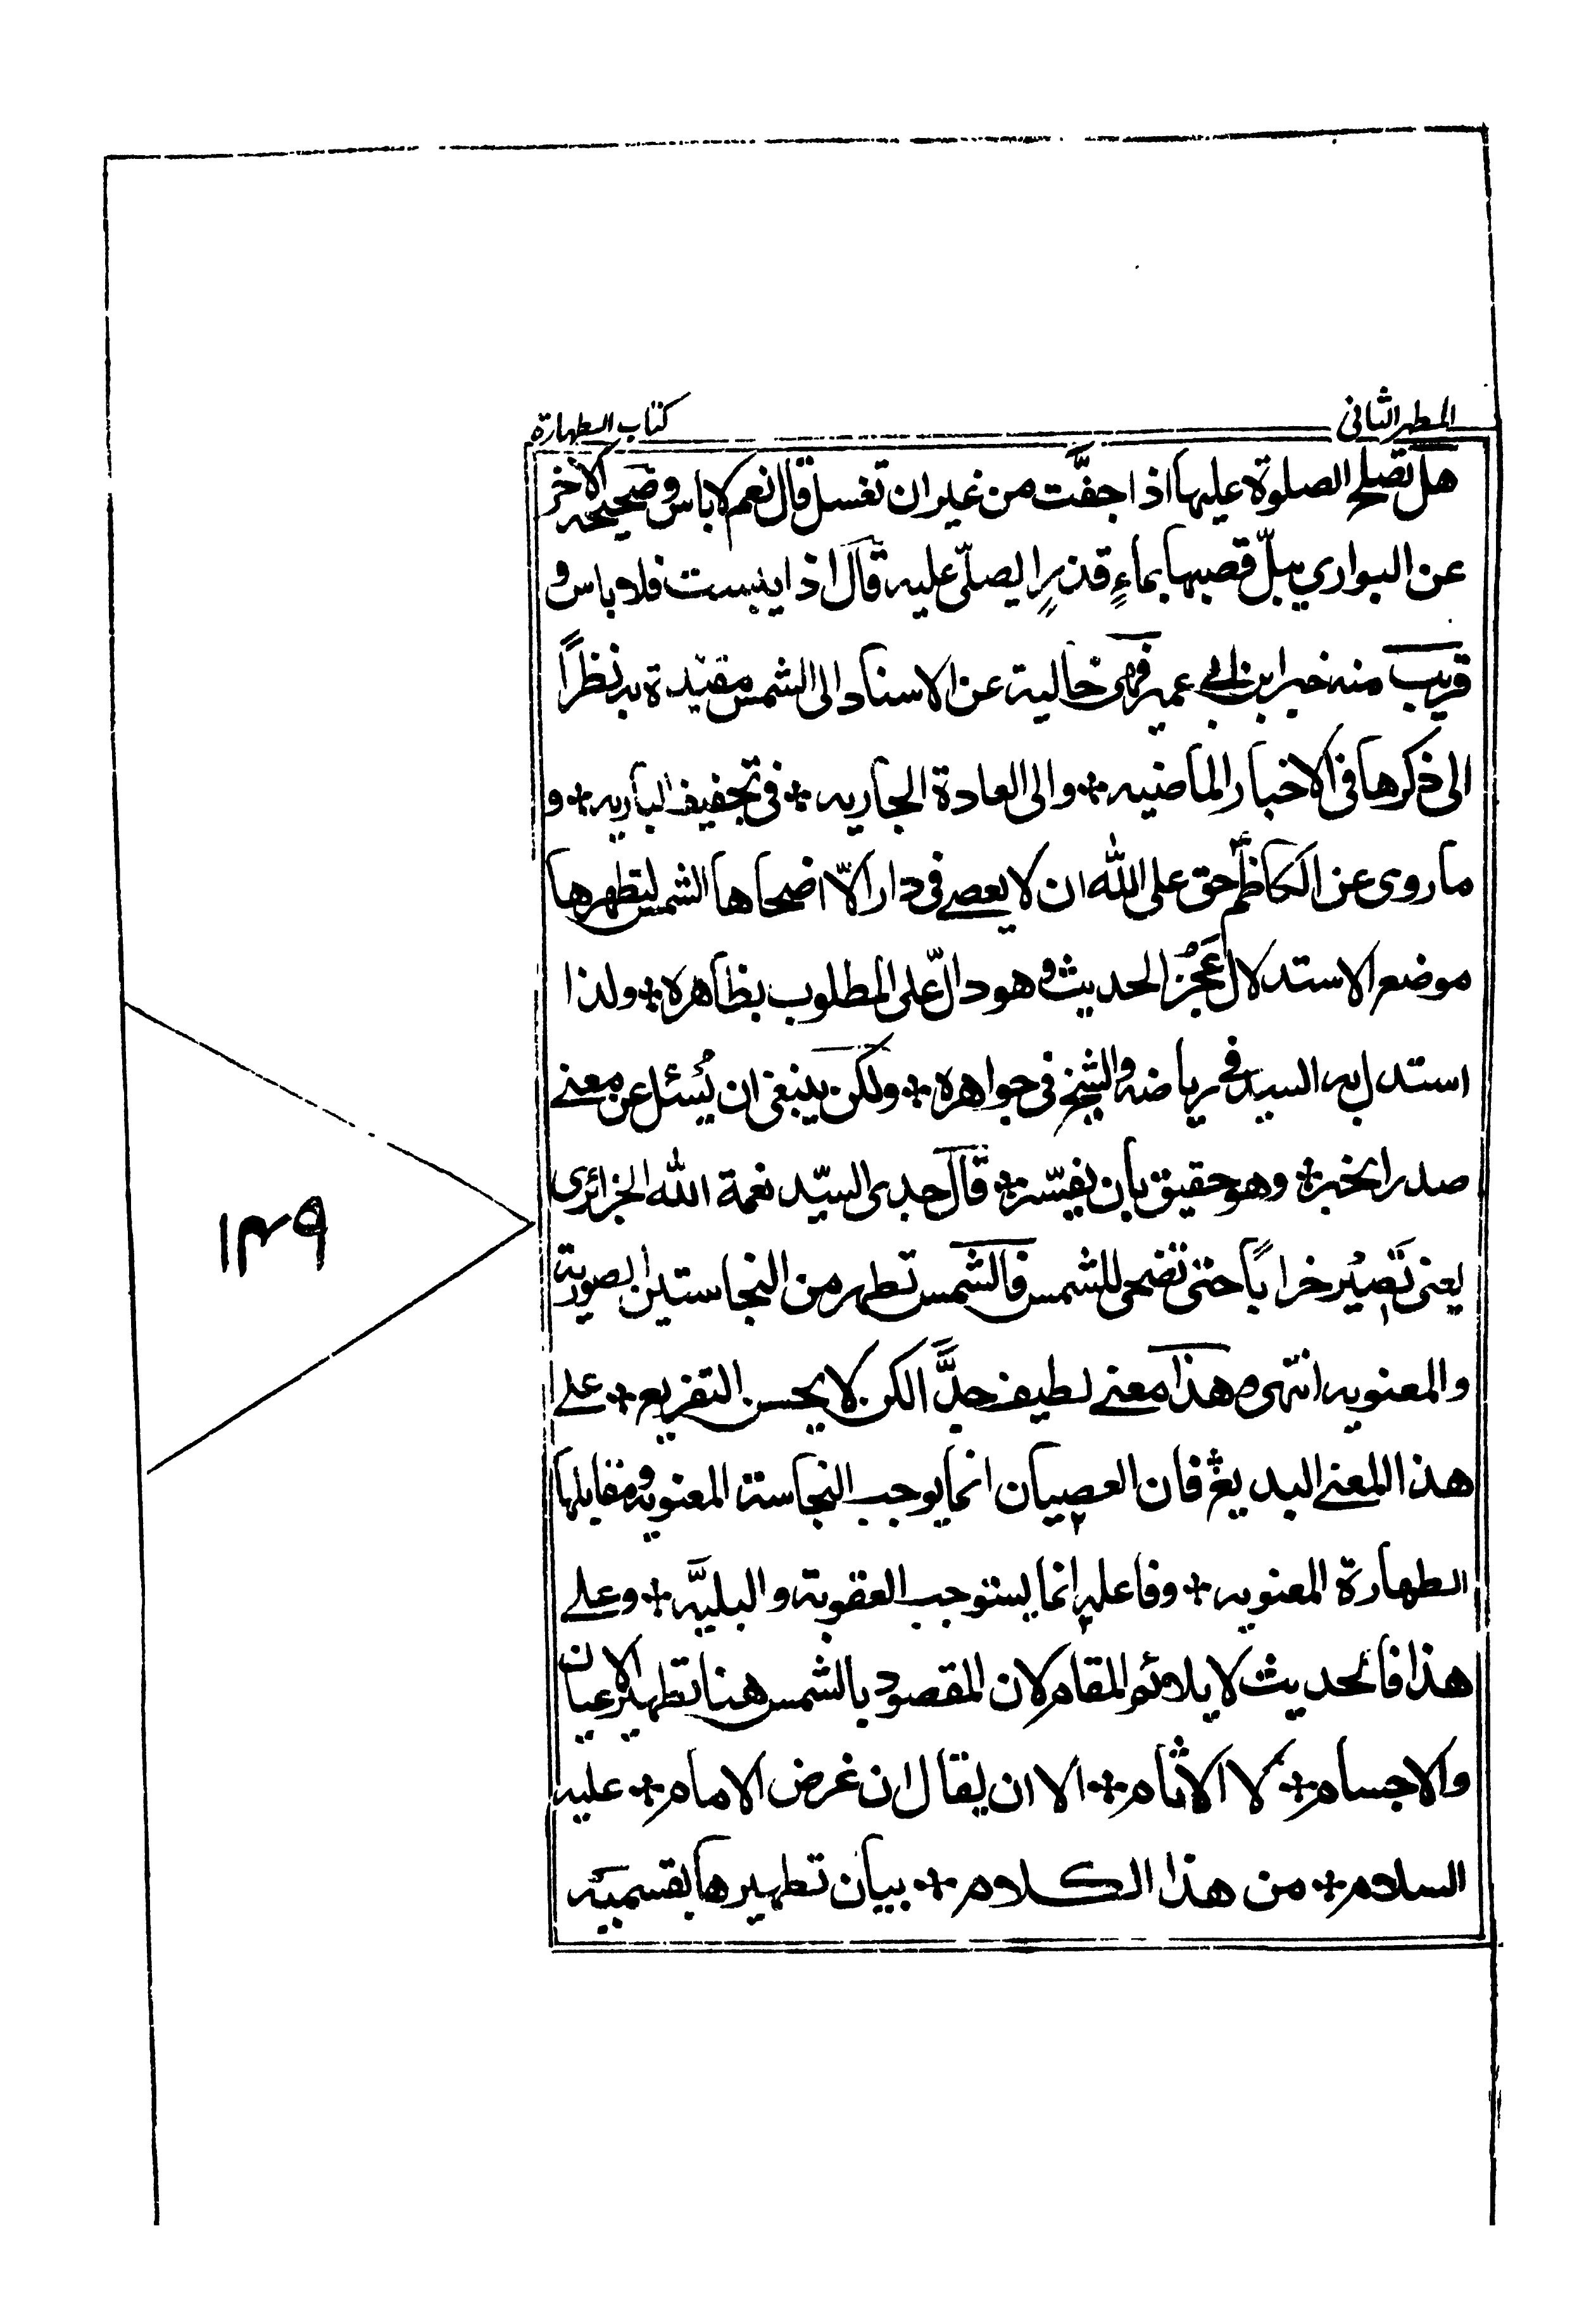 المطهر الثانی
كتاب الطهارة
هل تصلح الصلوة عليها اذا جفَّت من غير ان تغسل قال نعم لا باس و صحيحه الاخر
عن البواري يبلّ قصبها بماءٍ قذرٍ ايصلّى عليه قال اذا يبست فلا باس و
قريب منه خبر ابن ابي عمير فهى خالية عن الاسناد الى الشمس مقيّدة به نظراً
الى ذكرها فى الاخبار الماضيه والى العادة الجاريه فى تجفيف الباريه و
ما روى عن الكاظمؑ حق على الله ان لا يعصے فى دار الّا اضحاها الشمس لتطهرها
موضع الاستدلال عَجُز الحديث و هو دالّ على المطلوب بظاهره ولذا
استدل به السيد فى رياضه والشيخ فى جواهره ولكن ينبغى ان يُسئل عن معنے
صدر الخبر وهو حقيق بان يفسّر قال جدى السيّد نعمة الله الجزائرى
يعنى تَصِيُر خراباً حتى تضحى للشمس فالشمس تطهر من النجاستين الصورية
والمعنويه انتهى و هذا معنے لطيف جدَّا لكن لا يحسن التفريع علے
هذا المعنے البديع فان العصيان انما يوجب النجاسة المعنويه و مقابلها
الطهارة المعنويه وفاعله انما يستوجب العقوبة والبليَّه وعلے
هذا فالحديث لا يلائم المقام لان المقصود بالشمس هنا تطهير الاعيان
والاجسام لا الاثام الا ان يقال ان غرض الامام عليه
السلام من هذا الكلام بيان تطهيرها بقسميَه
١٣٩